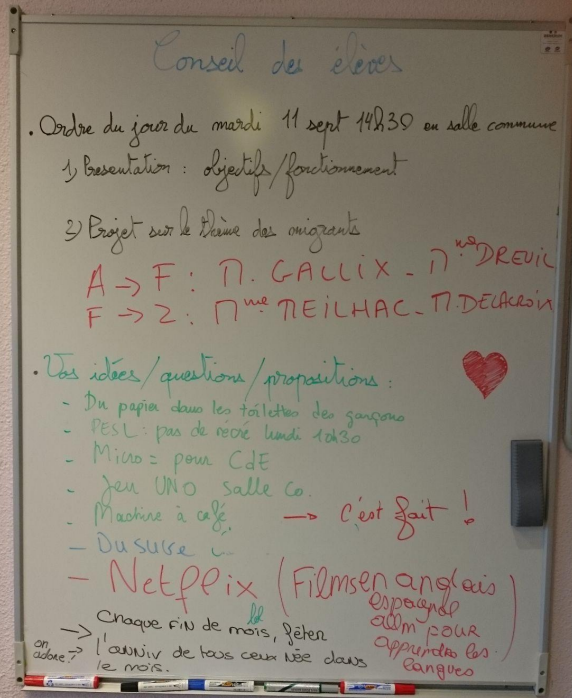 Conseil des élèves
. Ordre du jour du mardi 11 sept 14h30 en salle commune
1) Presentation : objectifs/fonctionnement
3) Projet sur le thème des migrants
A → F : M. GALLIX - Mme DREUIL
F → Z : Mme MEILHAC - M. DELACROIX
. Vos idées/questions/propositions :
- Du papier dans les toilettes des garçons
- PESL : pas de récré lundi 10h30
- Micro = pour CdE
- Jeu UNO salle co.
- Machine à café → c'est fait !
- Du sucre
- Netflix (Films en anglais
espagnol
allm pour
apprendre les
langues)
→ Chaque fin de mois, fêter
on adore! → l'anniv de tous ceux née dans
le mois.